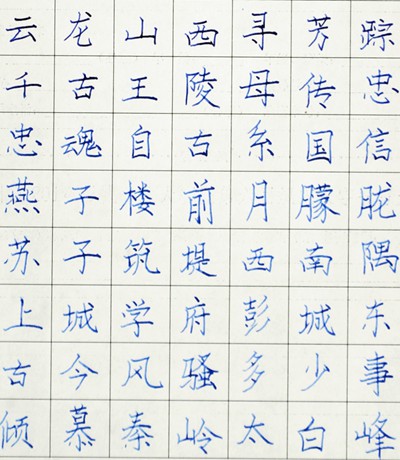 云龙山西寻芳踪
千古王陵母传忠
忠魂自古系国信
燕子楼前月朦胧
苏子筑堤西南隅
上城学府彭城东
古今风骚多少事
倾慕秦岭太白峰